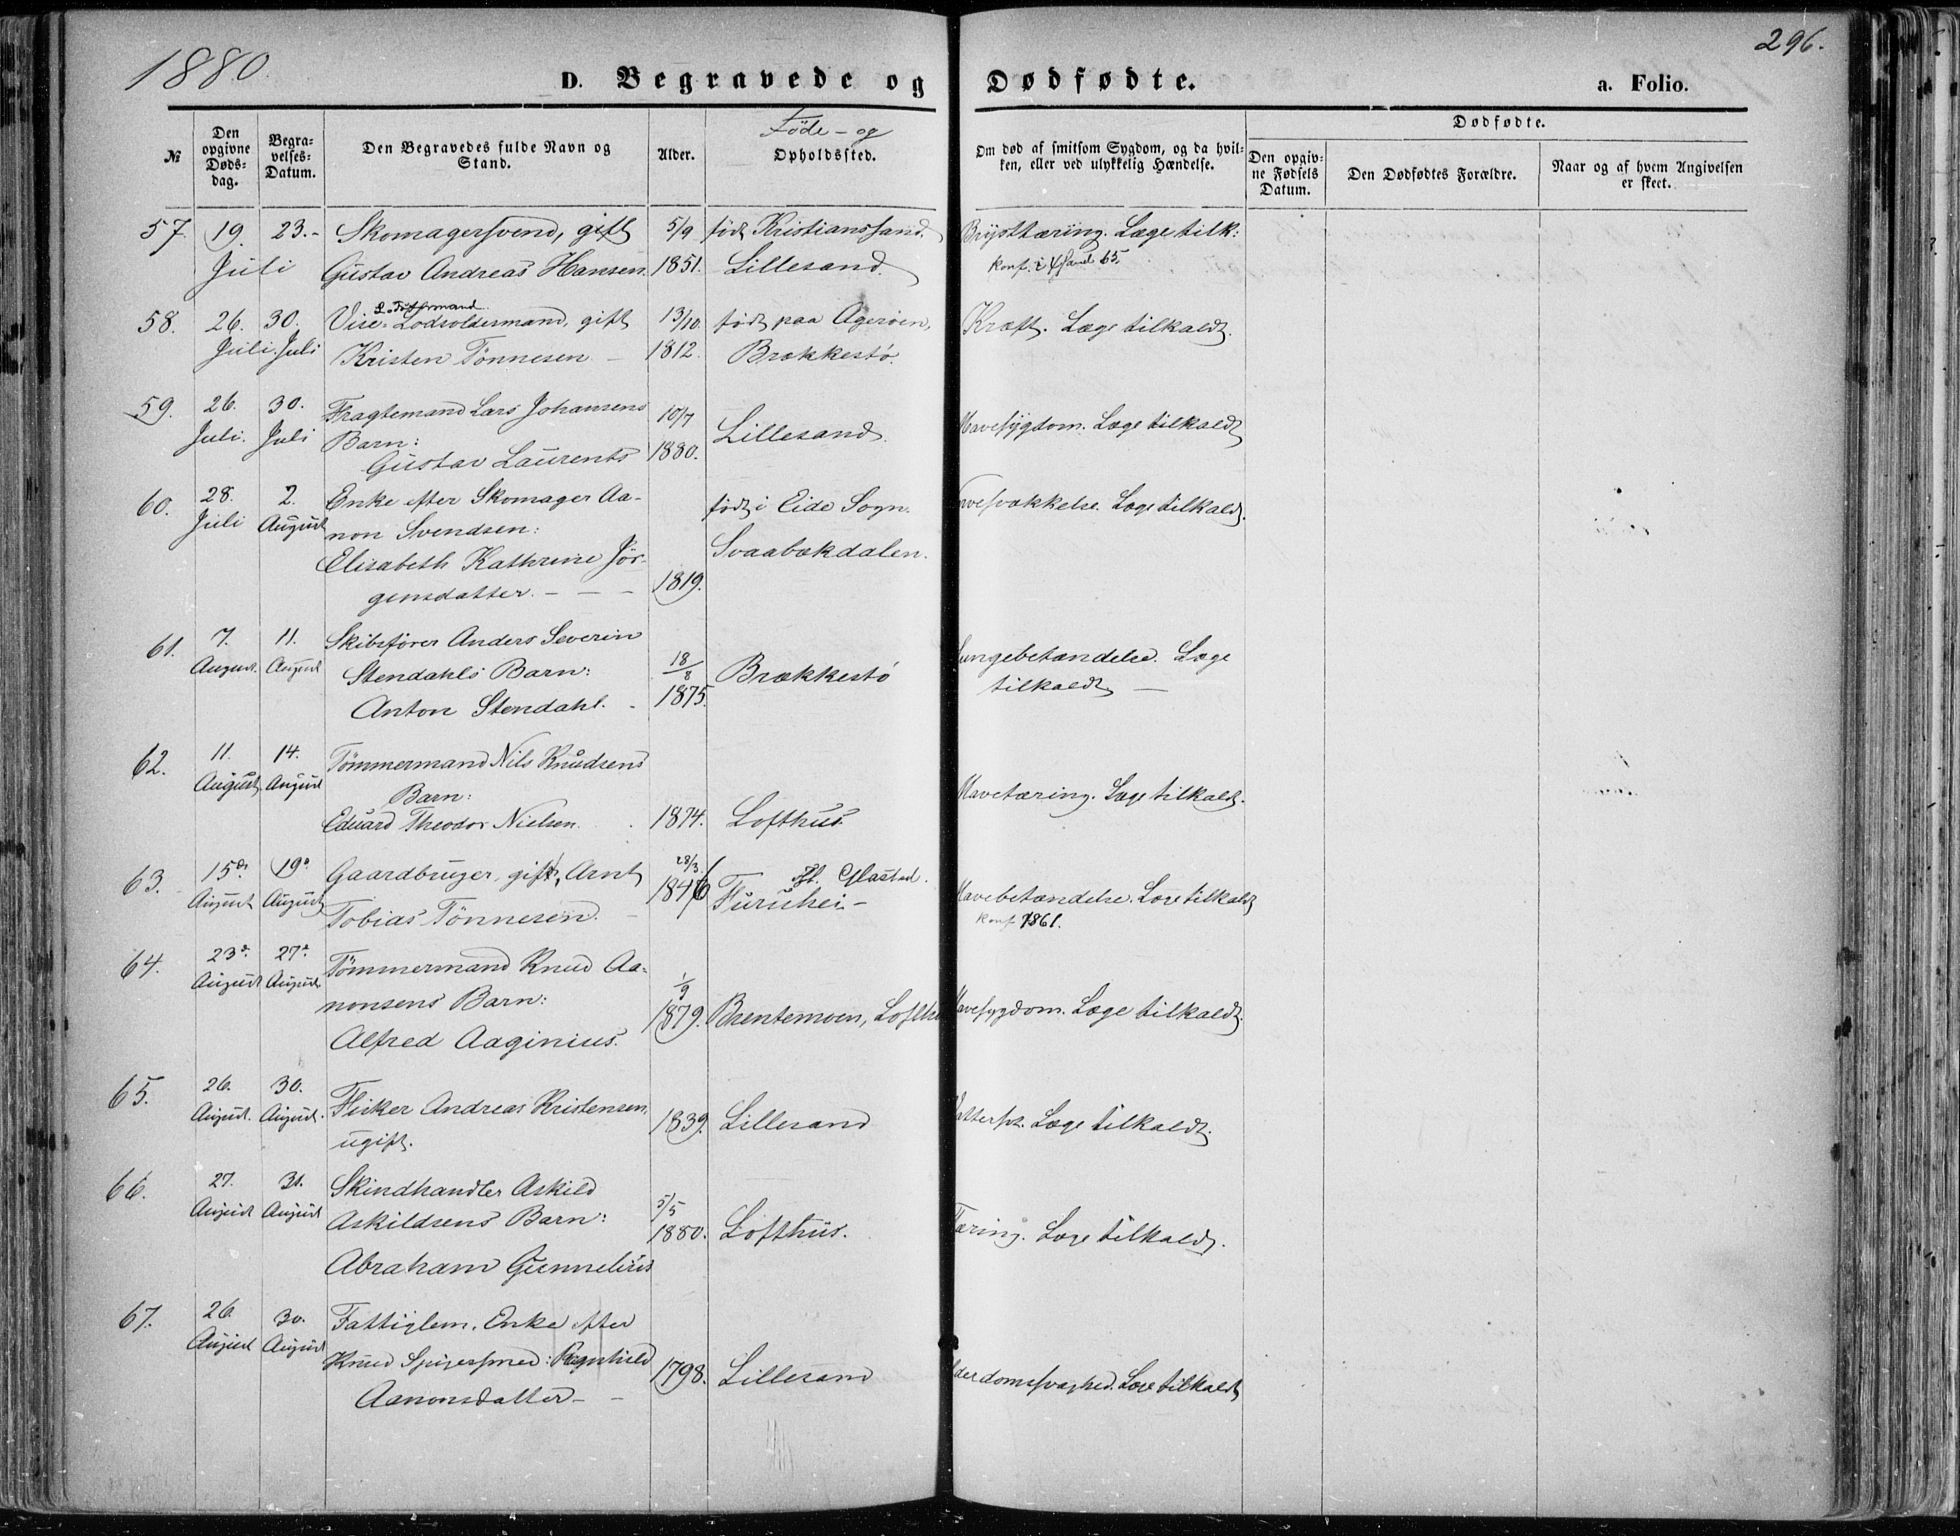 1880.
296.
D. Begravede og Dødfødte.
a. Folio.
№
Den opgivne Døds-dag.
Begra-velses-Datum.
Den Begravedes fulde Navn og Stand.
Alder.
Føde- og
Opholdssted.
Om død af smitsom Sygdom, og da hvil-ken, eller ved ulykkelig Hændelse.
Dødfødte.
Den opgiv-ne Fødsels Datum.
Den Dødfødtes Forældre.
Naar og af hvem Angivelsen er skeet.
57. 19. 23.- Skomagersvend, gift 5/9 født Kristianssand. Brysttæring. Læge tilk:
Juli Gustav Andreas Hansen. 1851. Lillesand. konf. i Xsand 65.
58. 26. 30. Vise-Lodsoldermand, gift 13/10. født paa Agerøen, Kræft. Læge tilkaldt.
Juli. Juli Kristen Tønnesen 1812. Brækkestø.
59. 26. 30. Fragtemand Lars Johansens 10/7
Juli. Juli Barn: Lillesand. Mavesygdom. Læge tilkaldt
Gustav Laurents 1880.
60. 28. 2. Enke efter Skomager Aa-
Juli August non Svendsen: født i Eide Sogn. Nervesvækkelse. Læge tilkaldt.
Elisabeth Kathrine Jør- Svaabækdalen.
gensdatter. - - - 1819.
61. 7. 11. Skibsfører Anders Severin
August. August Stendahls Barn: 18/8 Brækkestø Lungebetændelse. Læge
Anton Stendahl. 1875. tilkaldt
62. 11. 14. Tømmermand Nils Knudsens
August. August Barn: Mavetæring. Læge tilkaldt.
Eduard Theodor Nielsen. 1874. Lofthus.
63. 15de 19de Gaardbruger, gift, Arnt 28/3 f. Glastad.
August August Tobias Tønnesen. 1846 Furuhei- Mavebetændelse. Læge tilkaldt
konf 1861.
64. 23de 27de Tømmermand Knud Aa-
August August nonsens Barn: 1/9
Alfred Aaginius. 1879. Brentemoen, Lofthu Mavesygdom. Læge tilkaldt.
65. 26. 30.
August. August. Fisker Andreas Kristensen, 1839. Lillesand Vattersot. Læge tilkaldt.
ugift.
66. 27. 31. Skindhandler Askild
August August Askildsens Barn: 5/5
1880. Lofthus. Tæring. Læge tilkaldt.
Abraham Gunnelius
67. 26. 30. Fattiglem. Enke efter
August August Knud Spigersmed: Regnhild 1798. Lillesand Alderdomssvaghed. Læge tilkaldt
Aanonsdatter -